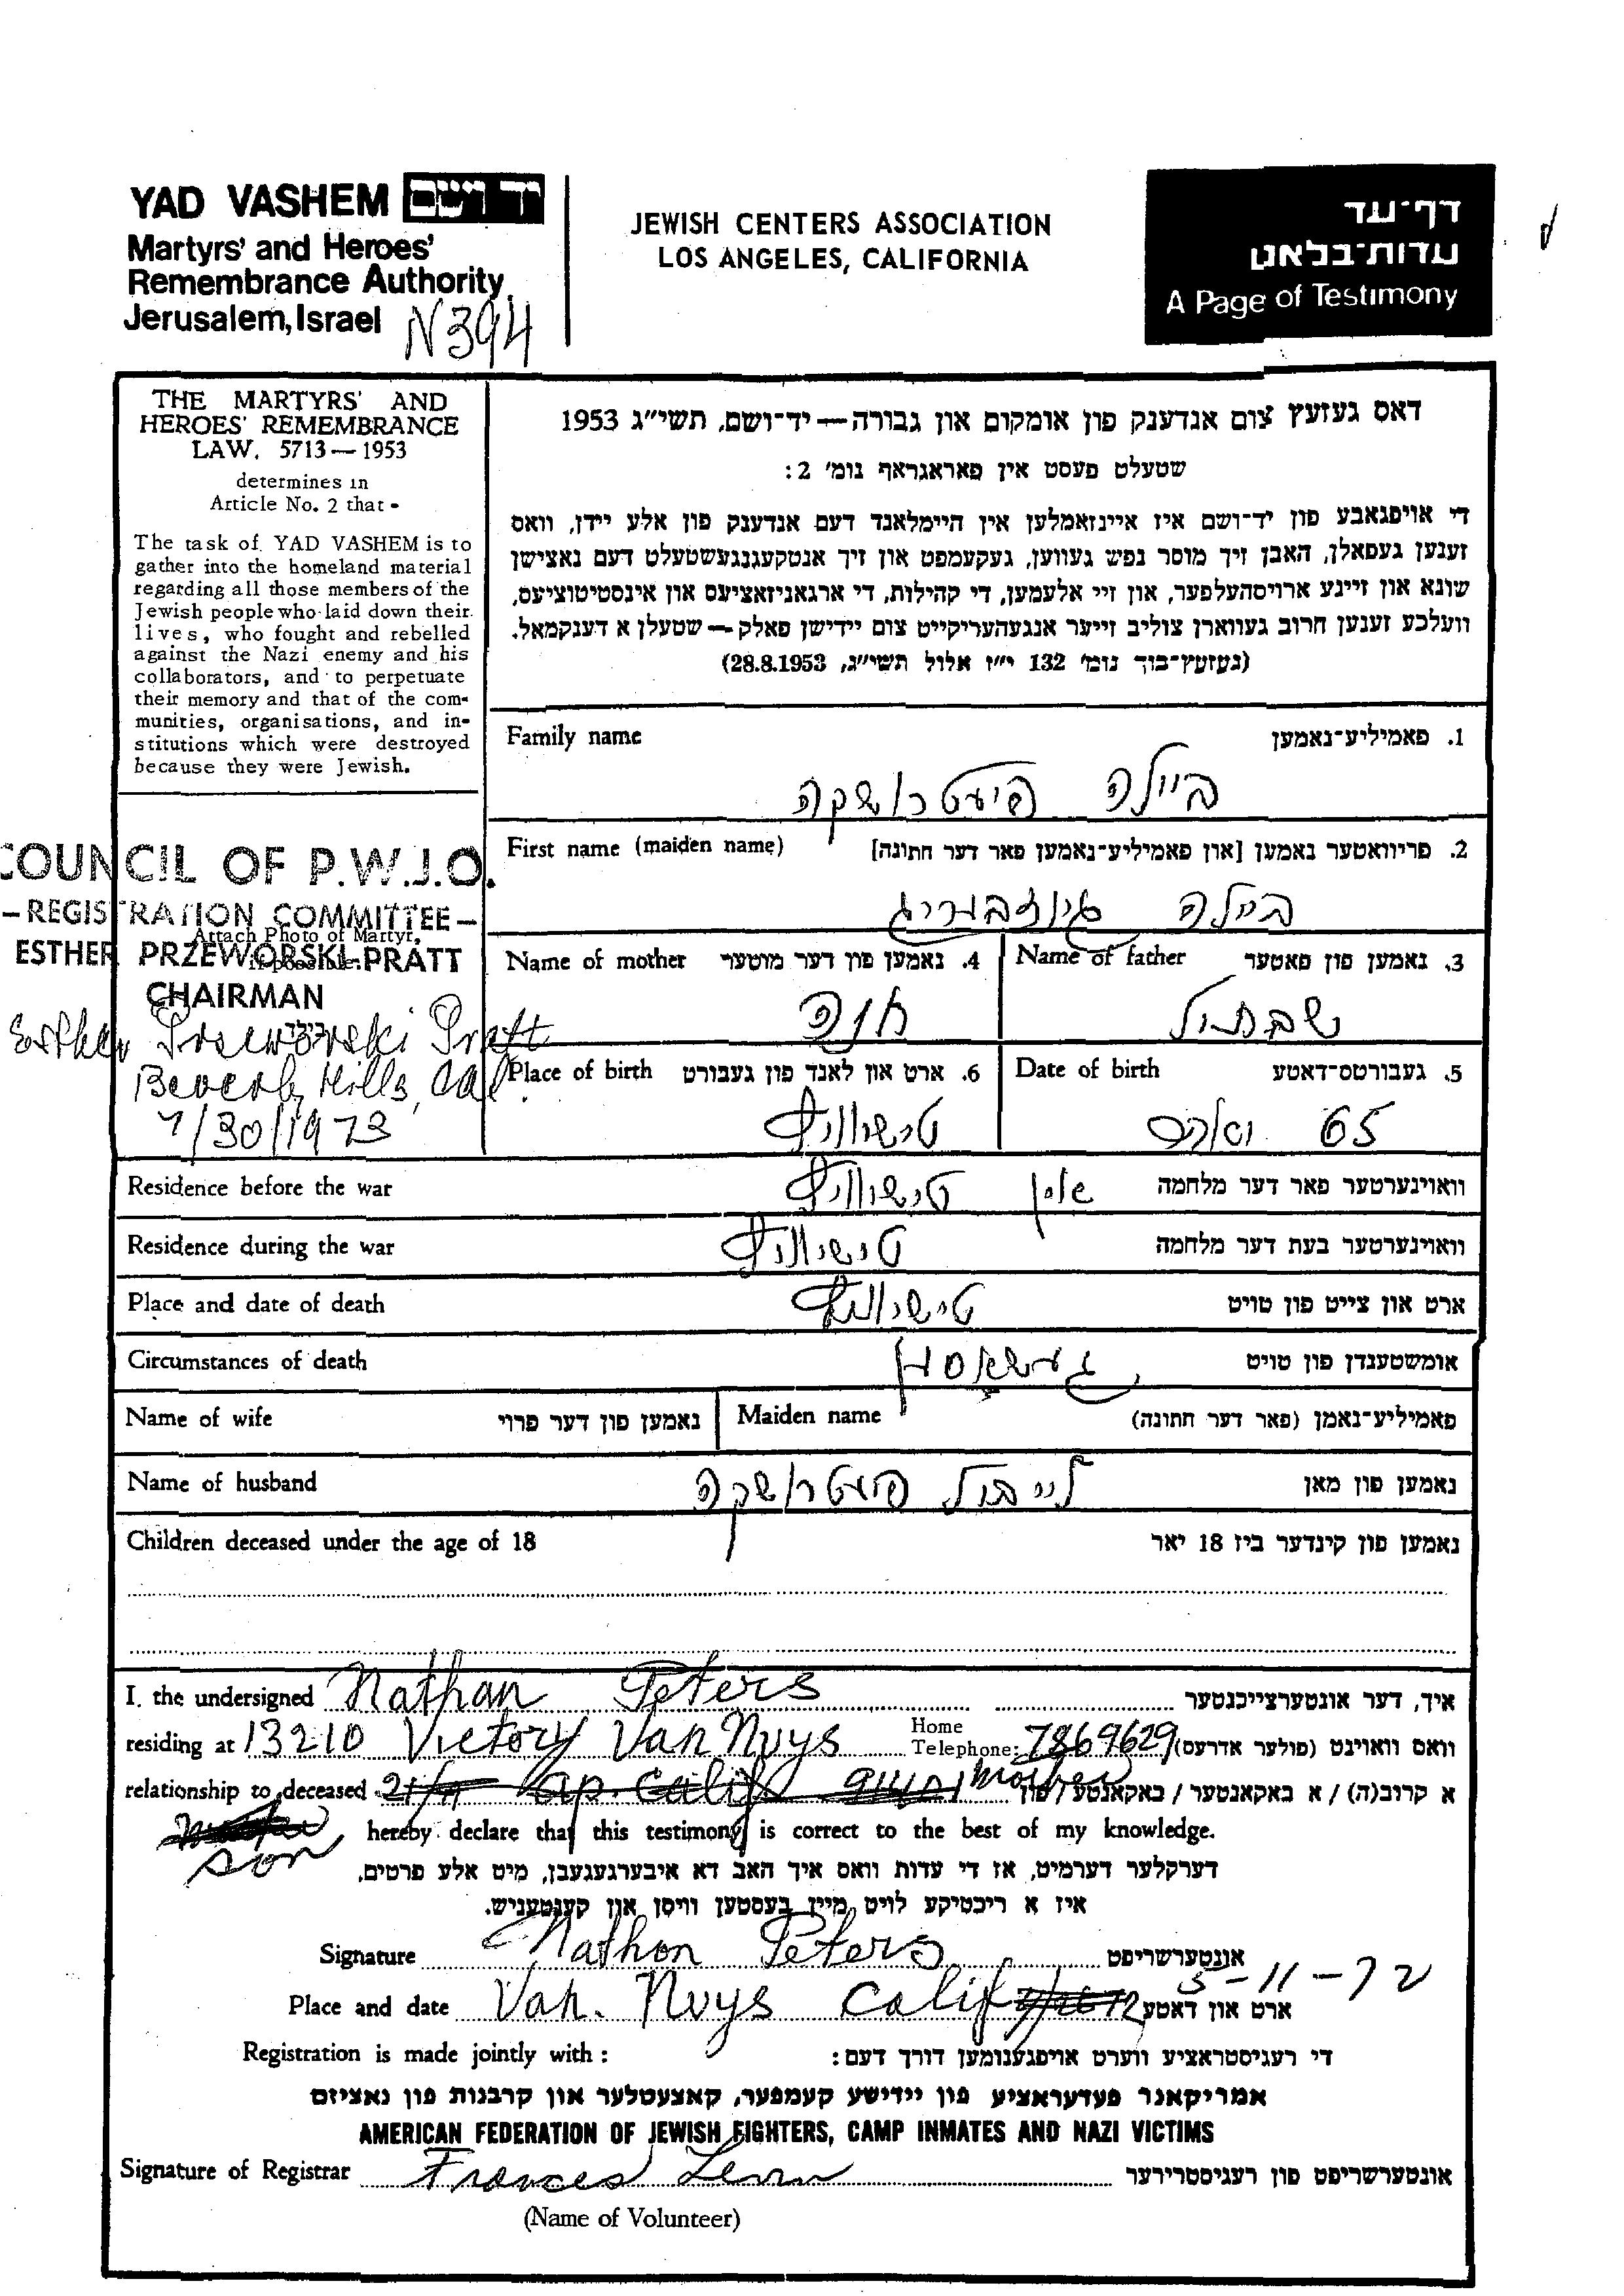 YAD VASHEM יד ושם
Martyrs' and Heroes'
Remembrance Authority
Jerusalem, Israel
N394
JEWISH CENTERS ASSOCIATION
LOS ANGELES, CALIFORNIA
דף-עד
עדות-בלאט
A Page of Testimony
THE MARTYRS' AND
HEROES' REMEMBRANCE
LAW, 5713—1953
determines in
Article No. 2 that -
The task of YAD VASHEM is to
gather into the homeland material
regarding all those members of the
Jewish people who laid down their
lives, who fought and rebelled
against the Nazi enemy and his
collaborators, and to perpetuate
their memory and that of the com-
munities, organisations, and in-
stitutions which were destroyed
because they were Jewish.
COUNCIL OF P.W.J.O.
- REGISTRATION COMMITTEE -
Attach Photo of Martyr,
if possible
ESTHER PRZEWORSKI-PRATT
CHAIRMAN
בילד
Esther Przeworski Pratt
Beverly Hills, Cal.
1/30/1973
דאס געזעץ צום אנדענק פון אומקום און גבורה — יד-ושם, תשי"ג 1953
שטעלט פעסט אין פאראגראף נומ' 2:
די אויפגאבע פון יד-ושם איז איינזאמלען אין היימלאנד דעם אנדענק פון אלע יידן, וואס
זענען געפאלן, האבן זיך מוסר נפש געווען, געקעמפט און זיך אנטקעגנגעשטעלט דעם נאצישן
שונא און זיינע ארויסהעלפער, און זיי אלעמען, די קהילות, די ארגאניזאציעס און אינסטיטוציעס,
וועלכע זענען חרוב געווארן צוליב זייער אנגעהעריקייט צום יידישן פאלק — שטעלן א דענקמאל.
(געזעץ-בוך נומ' 132 י"ז אלול תשי"ג, 28.8.1953)
Family name 1. פאמיליע-נאמען
ביילה פיעטרושקה
First name (maiden name) 2. פריוואטער נאמען [און פאמיליע-נאמען פאר דער חתונה]
ביילה גינזבורג
Name of mother 4. נאמען פון דער מוטער
חנה
Name of father 3. נאמען פון פאטער
שבתיל
Place of birth 6. ארט און לאנד פון געבורט
טישוויץ
Date of birth 5. געבורטס-דאטע
65
Residence before the war טישוויץ פוילן וואוינערטער פאר דער מלחמה
Residence during the war טישוויץ וואוינערטער בעת דער מלחמה
Place and date of death טישוויץ ארט און צייט פון טויט
Circumstances of death געשאסן אומשטענדן פון טויט
Name of wife נאמען פון דער פרוי
Maiden name פאמיליע-נאמן (פאר דער חתונה)
Name of husband לייבול פיעטרושקה נאמען פון מאן
Children deceased under the age of 18 נאמען פון קינדער ביז 18 יאר
I, the undersigned Nathan Peters איך, דער אונטערצייכנטער
residing at 13210 Victory Van Nuys Home Telephone: 7869629 וואס וואוינט (פולער אדרעס)
relationship to deceased 21/A ap. Calif 91401 mother א קרוב(ה) / א באקאנטער / באקאנטע / פון
son hereby declare that this testimony is correct to the best of my knowledge.
דערקלער דערמיט, אז די עדות וואס איך האב דא איבערגעגעבן, מיט אלע פרטים,
איז א ריכטיקע לויט מיין בעסטען וויסן און קענטעניש.
Signature Nathan Peters אונטערשריפט
Place and date Van. Nuys Calif 5-11-72 ארט און דאטע
Registration is made jointly with : די רעגיסטראציע ווערט אויפגענומען דורך דעם:
אמריקאנר פעדעראציע פון יידישע קעמפער, קאצעטלער און קרבנות פון נאציזם
AMERICAN FEDERATION OF JEWISH FIGHTERS, CAMP INMATES AND NAZI VICTIMS
Signature of Registrar Frances אונטערשריפט פון רעגיסטרירער
(Name of Volunteer)